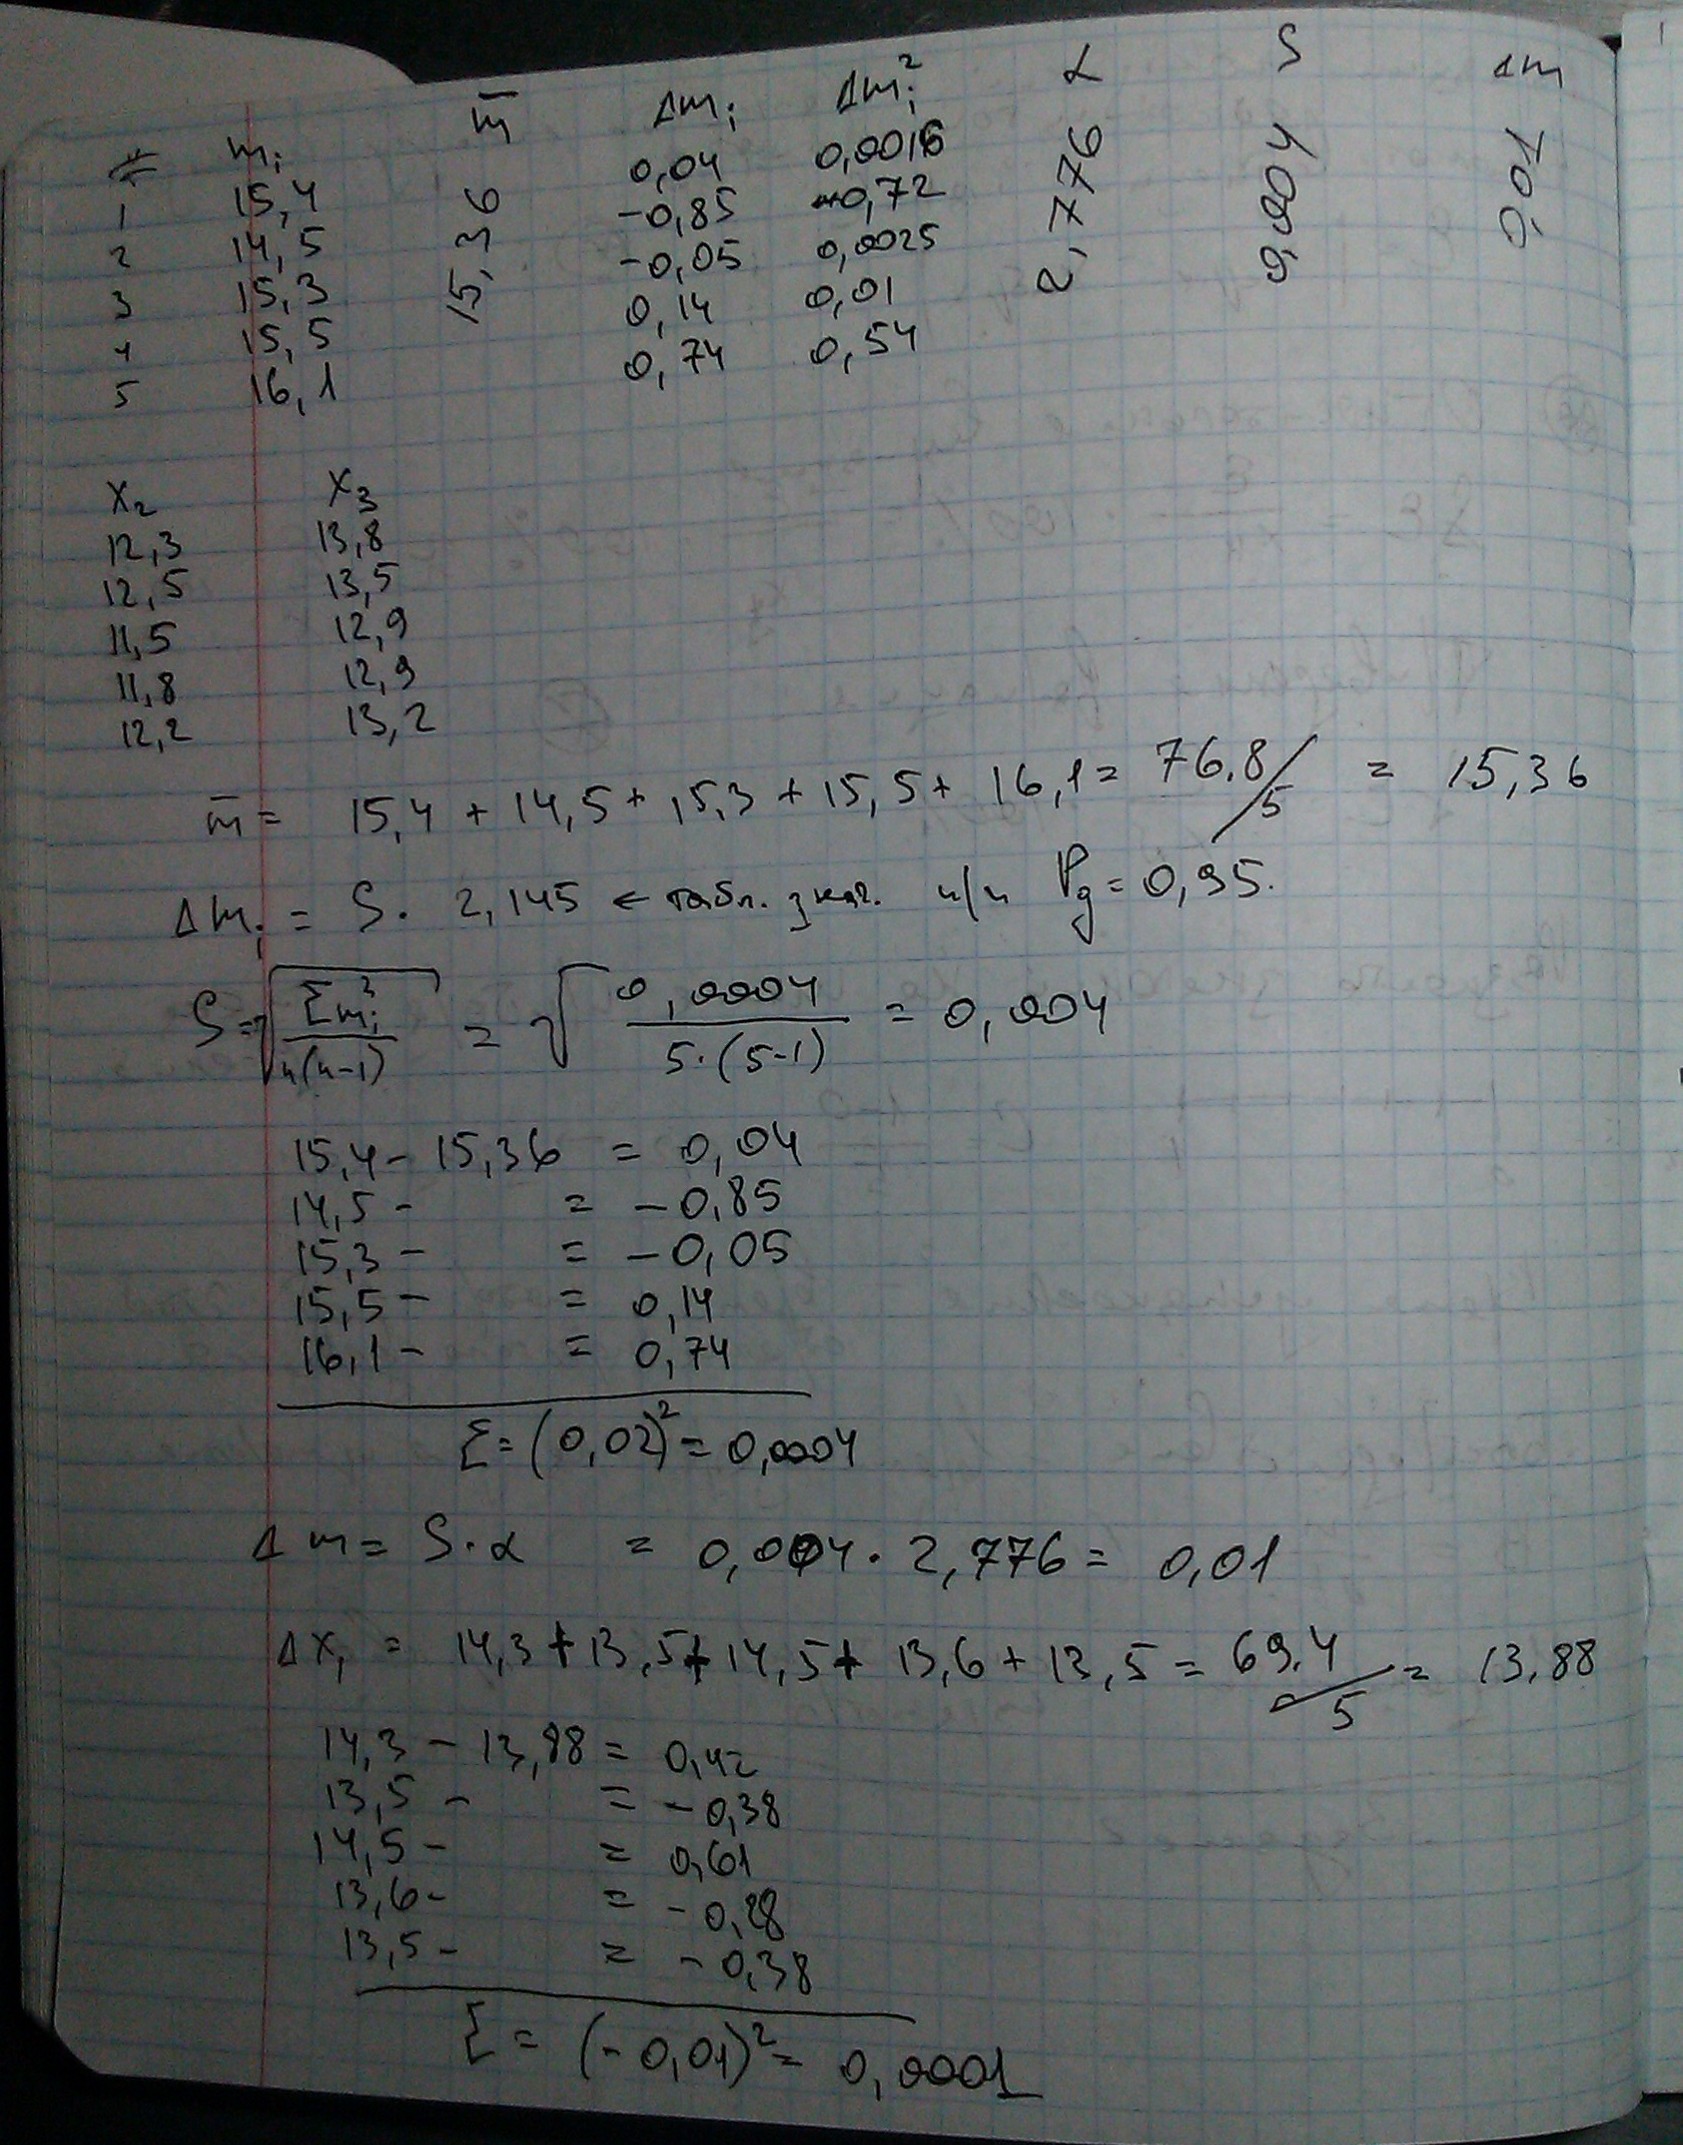 # mᵢ m̄ Δmᵢ Δmᵢ² α S Δm
1 15,4 15,36 0,04 0,0016 2,776 0,004 0,01
2 14,5 -0,85 0,72
3 15,3 -0,05 0,0025
4 15,5 0,14 0,01
5 16,1 0,74 0,54
x₂ x₃
12,3 13,8
12,5 13,5
11,5 12,9
11,8 12,9
12,2 13,2
m̄ = 15,4 + 14,5 + 15,3 + 15,5 + 16,1 = 76,8/5 = 15,36
Δmᵢ = S · 2,145 ← табл. знач. Pg = 0,95.
S = √(Σmᵢ²/n(n-1)) = √(0,0004/5·(5-1)) = 0,004
15,4 - 15,36 = 0,04
14,5 - = -0,85
15,3 - = -0,05
15,5 - = 0,14
16,1 - = 0,74
Σ = (0,02)² = 0,0004
Δm = S·α = 0,004 · 2,776 = 0,01
Δx₁ = 14,3 + 13,5 + 14,5 + 13,6 + 13,5 = 69,4/5 = 13,88
14,3 - 13,88 = 0,42
13,5 - = -0,38
14,5 - = 0,61
13,6 - = -0,28
13,5 - = -0,38
Σ = (-0,01)² = 0,0001